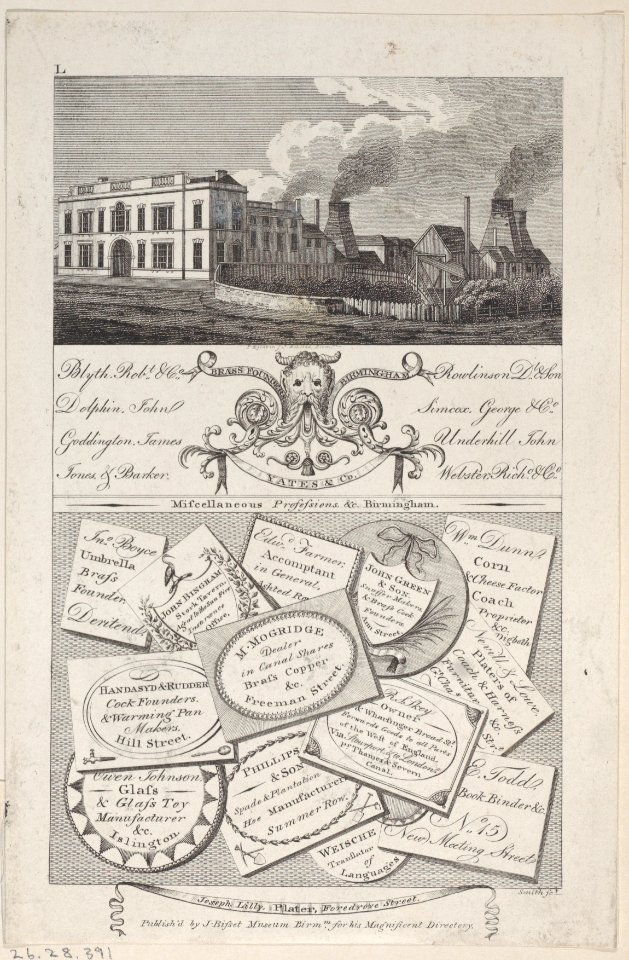 L
BRASS FOUND
BIRMINGHAM
Blyth. Robt. & Co.
Dolphin. John
Goddington, James
Jones, & Barker.
Rowlinson Dl. & Son
Simcox. George & Co.
Underhill John
Webster. Richd. & Co.
YATES & Co.
Miscellaneous Professions, &c. Birmingham.
Jno. Boyce
Umbrella
Brass
Founder.
Deritend
JOHN BINGHAM
Stork Tavern.
Office.
Edwd. Farmer.
Accomptant
in General.
JOHN GREEN
& SON.
Snuffer Makers,
& Brass Cock
Founders.
Ann Street
Wm. Dunn
Corn
& Cheese Factor
Coach
Proprietor
&c.
M. MOGRIDGE
Dealer
in Canal Shares
Brass Copper
&c.
Freeman Street.
Platers of
Coach & Harness
Furniture &c.
HANDASYD & RUDDER
Cock Founders.
& Warming Pan
Makers.
Hill Street.
Owner
& Wharfinger Broad St.
Forwards Goods to all Parts
of the West of England,
Via, Stourport &c. London
pr. Thames & Severn
Canal.
Owen Johnson.
Glass
& Glass Toy
Manufacturer
&c.
Islington.
PHILLIPS
& SON
Spade & Plantation
Hoe Manufacturers
Summer Row.
E. Todd
Book Binder &c.
No. 15
New Meeting Street
WEISCHE
Translator
of
Languages
Smith sc.
Joseph Lilly, Plater, Foredrove Street.
Publish'd by J. Bisset Museum Birmm. for his Magnificent Directory.
26.28.391